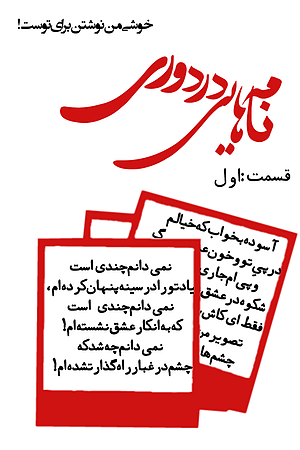 خوشی من نوشتن برای توست!
نامه‌هایی در دوری
قسمت: اول
آسوده بخواب که خیالم
در پی تو و خون
و پی ام جاری
شکوه در عشق
فقط ای کاش،
تصویر من
چشم‌ها
نمی دانم چندی است
یادتو را در سینه پنهان کرده ام،
نمی دانم چندی است
که به انکار عشق نشسته ام!
نمی دانم چه شد که
چشم در غبار راه گذار تشده ام!